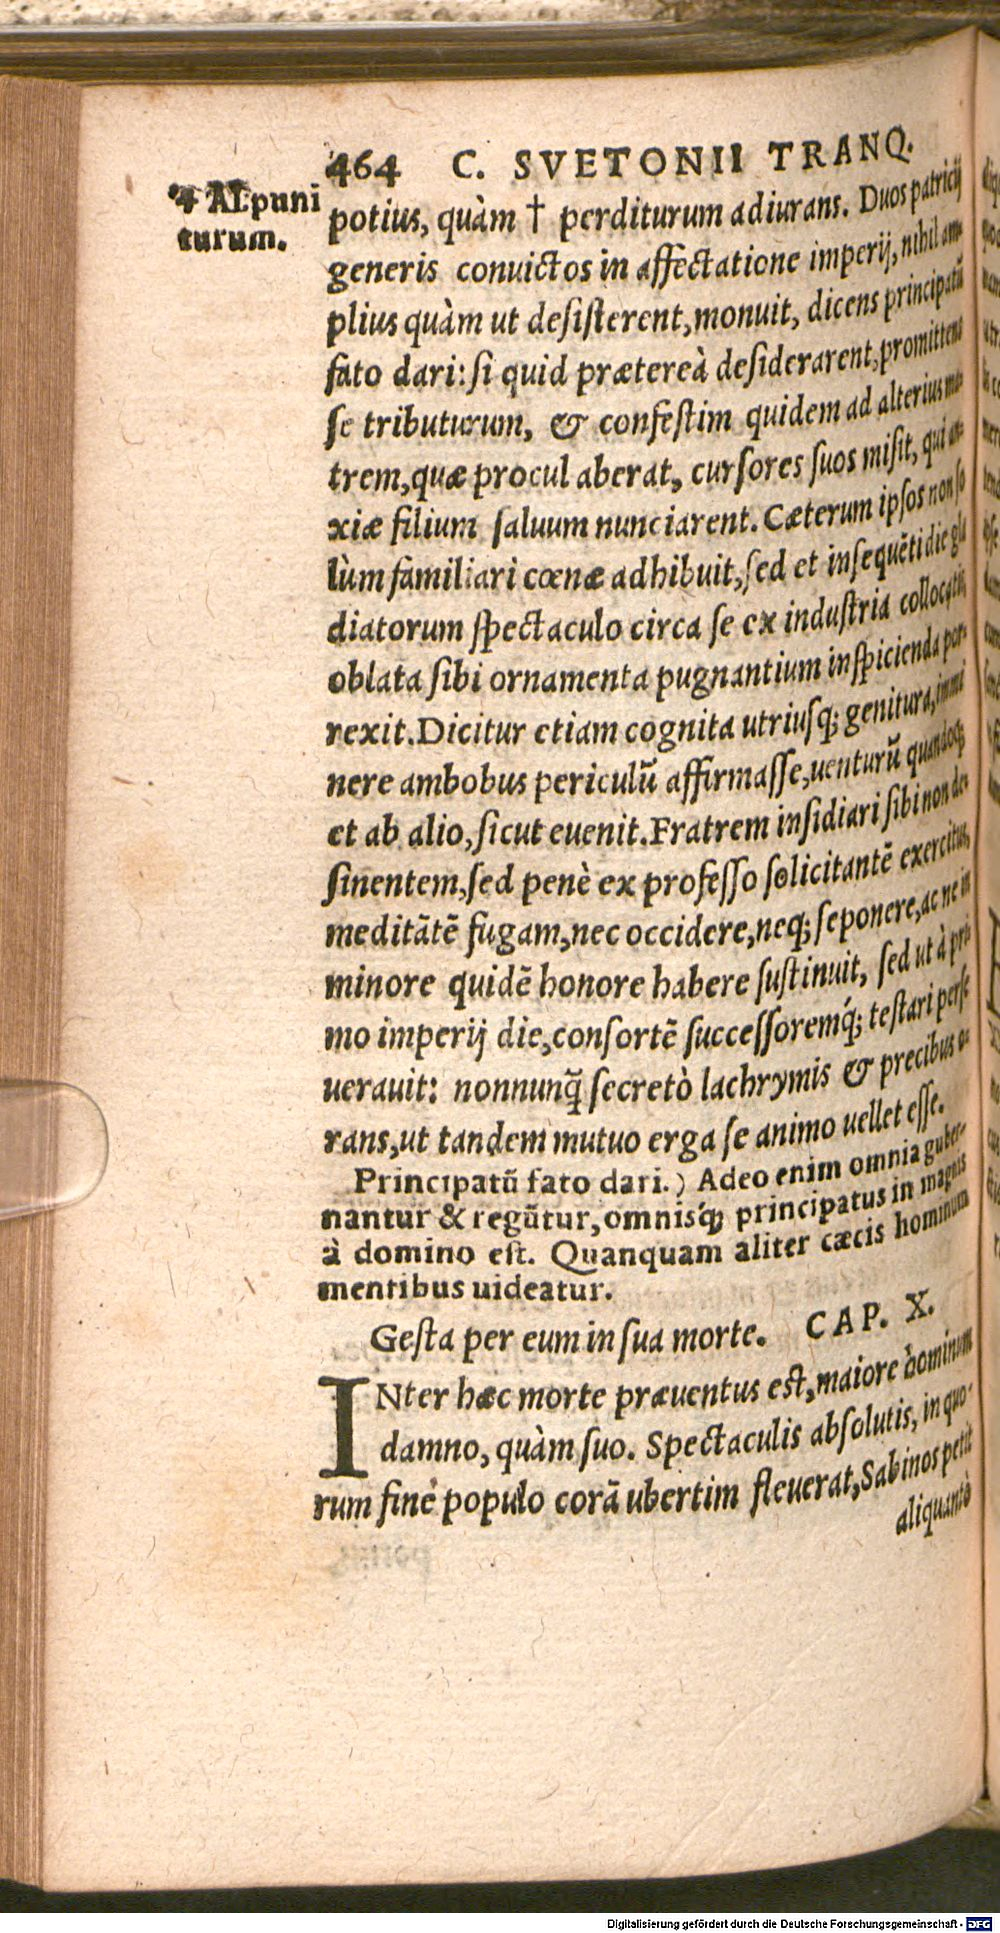 464 C. SVETONII TRANQ.
4 Al puni
turum.
potius, quàm † perditurum adiurans. Duos patricij
generis conuictos in affectatione imperij, nihil am-
plius quàm ut desisterent, monuit, dicens principatũ
fato dari: si quid prætereà desiderarent, promittens
se tributurum, & confestim quidem ad alterius ma-
trem, quæ procul aberat, cursores suos misit, qui an-
xiæ filium saluum nunciarent. Cæterum ipsos non so
lùm familiari cœnæ adhibuit, sed et insequẽti die gla
diatorum spectaculo circa se ex industria collocatis,
oblata sibi ornamenta pugnantium inspicienda por-
rexit. Dicitur etiam cognita utriusq; genitura, immi
nere ambobus periculũ affirmasse, uenturũ quandoq;
et ab alio, sicut euenit. Fratrem insidiari sibi non de-
sinentem, sed penè ex professo solicitantẽ exercitus,
meditãtẽ fugam, nec occidere, neq; seponere, ac ne in
minore quidẽ honore habere sustinuit, sed ut à pri
mo imperij die, consortẽ successoremq́; testari perse
uerauit: nonnunq̃ secretò lachrymis & precibus o-
rans, ut tandem mutuo erga se animo uellet esse.
Principatũ fato dari.) Adeo enim omnia guber-
nantur & regũtur, omnisq́; principatus in magnis
à domino est. Quanquam aliter cæcis hominum
mentibus uideatur.
Gesta per eum in sua morte. CAP. X.
INter hæc morte præuentus est, maiore hominum
damno, quàm suo. Spectaculis absolutis, in quo-
rum fine populo corã ubertim fleuerat, Sabinos petit
aliquantò
Digitalisierung gefördert durch die Deutsche Forschungsgemeinschaft - DFG